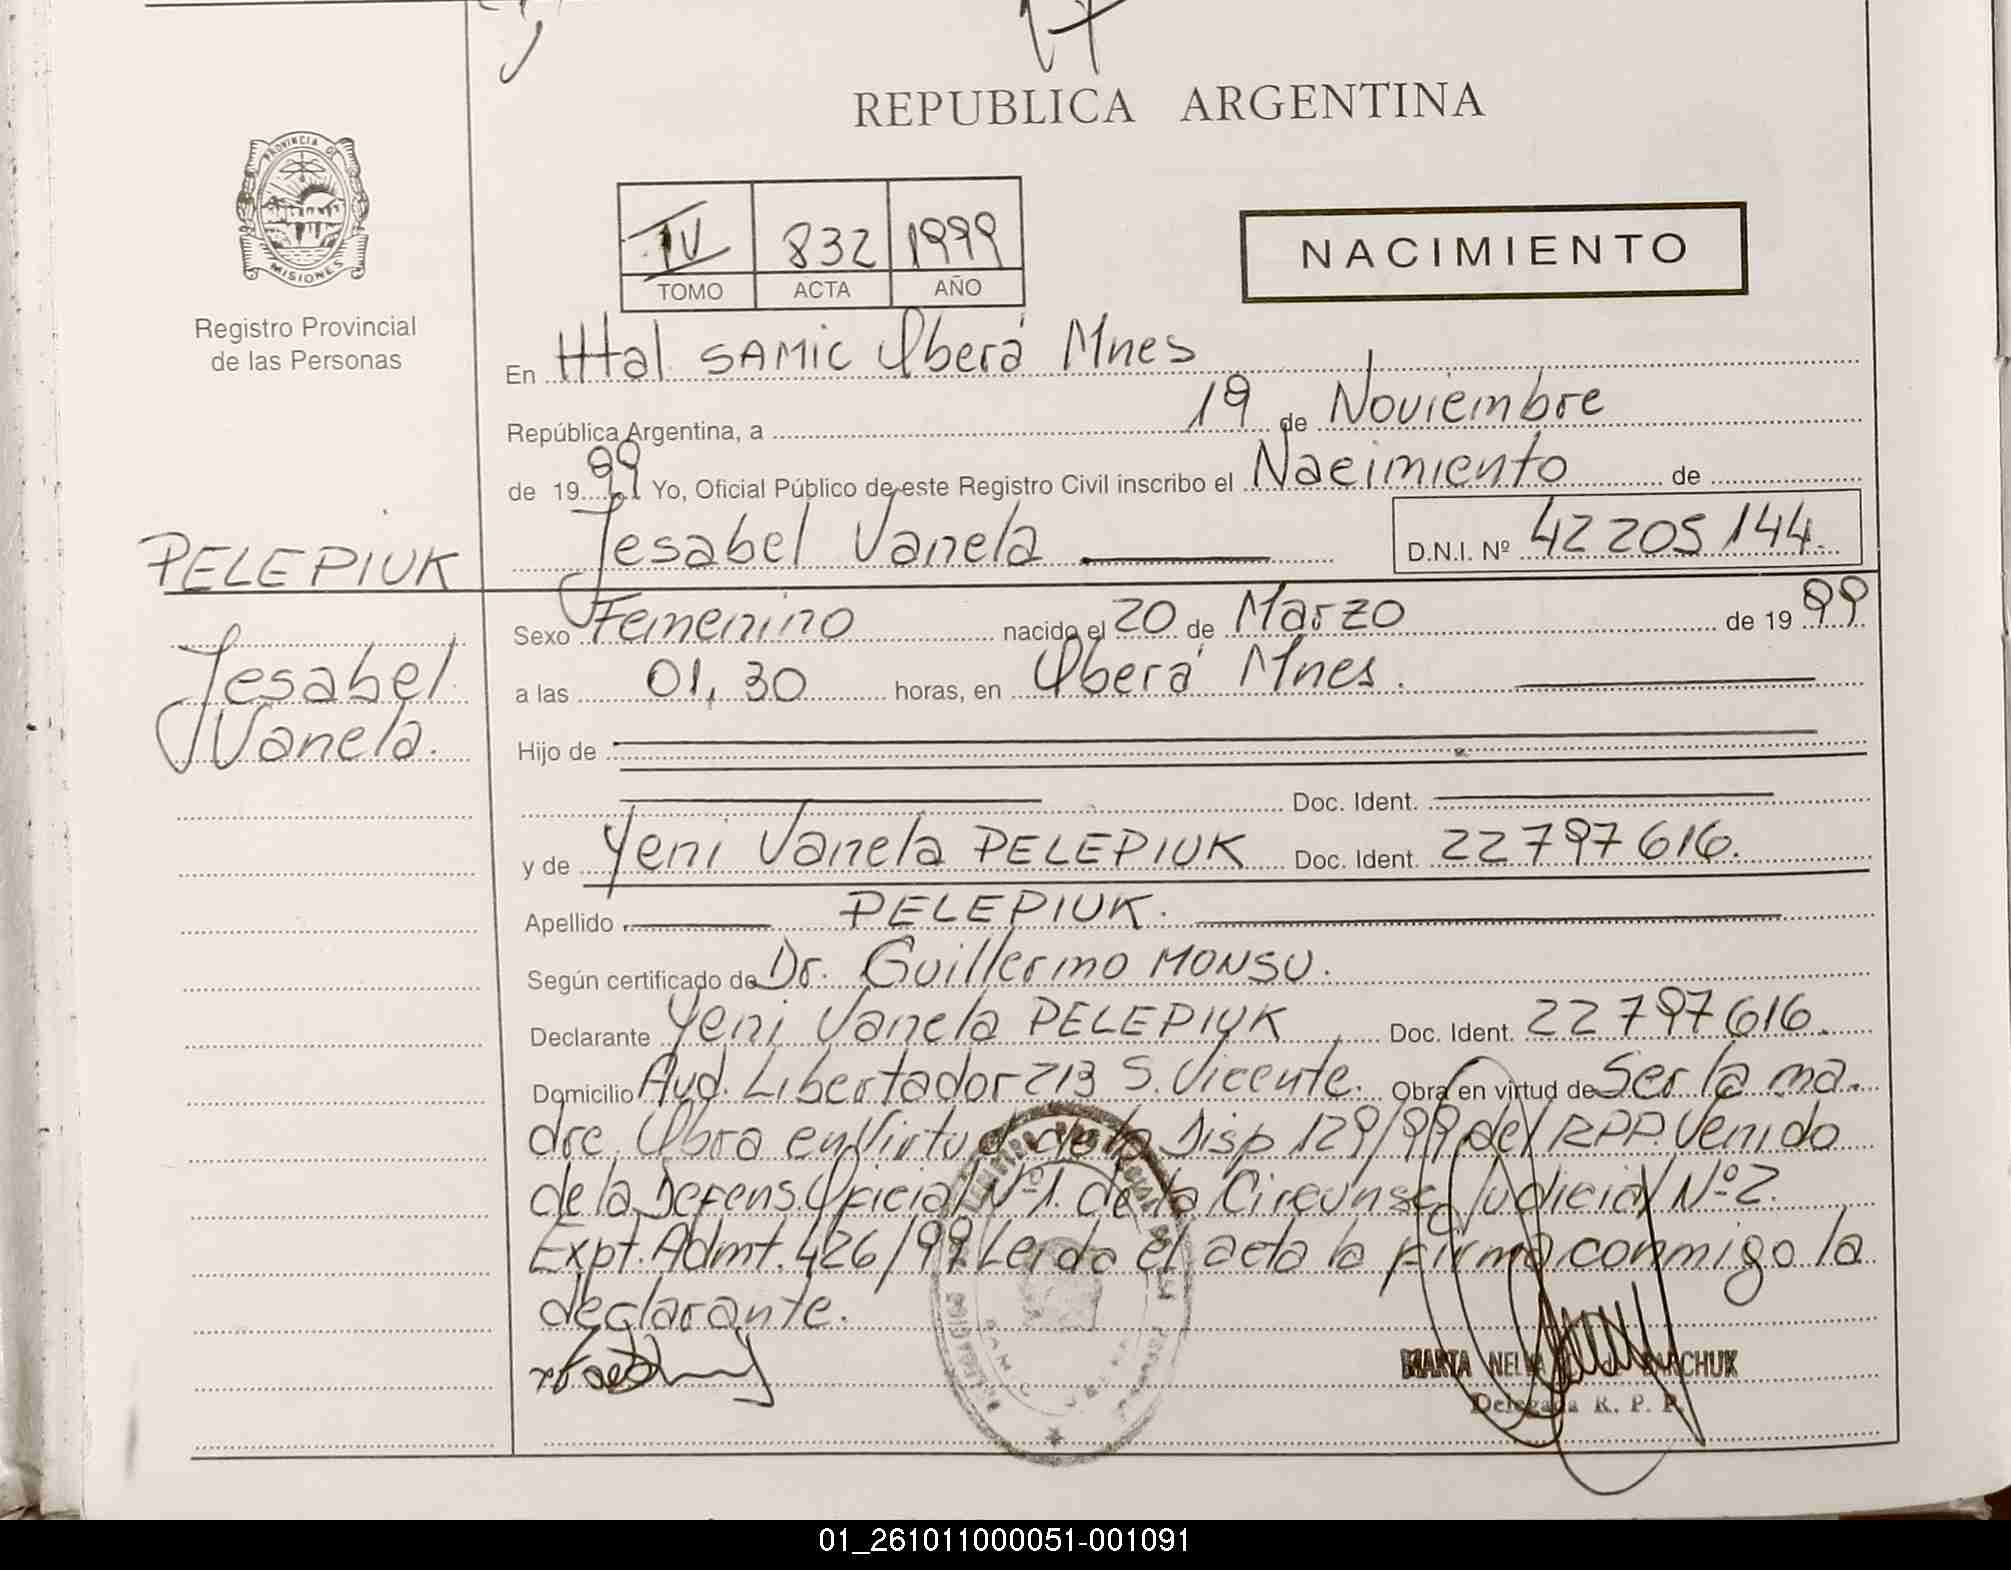 REPUBLICA ARGENTINA
PROVINCIA DE MISIONES
Registro Provincial
de las Personas
IV 832 1999
TOMO ACTA AÑO
NACIMIENTO
En Htal SAMIC Oberá Mnes
República Argentina, a 19 de Noviembre
de 1999 Yo, Oficial Público de este Registro Civil inscribo el Nacimiento de
Jesabel Vanela D.N.I. Nº 42205144.
PELEPIUK
Jesabel
Vanela.
Sexo Femenino nacido el 20 de Marzo de 1999
a las 01,30 horas, en Oberá Mnes.
Hijo de
Doc. Ident.
y de Yeni Vanela PELEPIUK Doc. Ident. 22797616.
Apellido PELEPIUK.
Según certificado de Dr. Guillermo MONSU.
Declarante Yeni Vanela PELEPIUK Doc. Ident. 22797616.
Domicilio Avd. Libertador 213 S. Vicente. Obra en virtud de Ser la ma
dre. Obra en Virtud de la Disp 129/99 del RPP. Venido
de la Defens. Oficial Nº1. de la Circunsc Judicial Nº2.
Expt. Admt. 426/99 Leida el acta la firma conmigo la
declarante.
MARTA NELI ARCHUK
Delegada R. P. P.
01_261011000051-001091